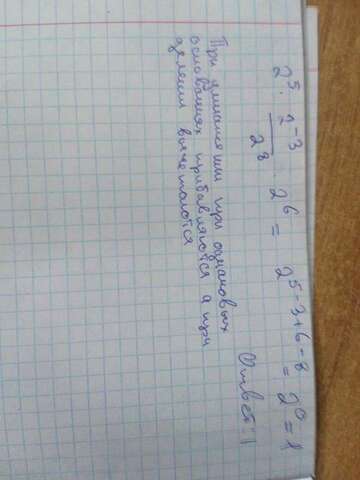 2⁵ · 2⁻³/2⁸ · 2⁶ = 2⁵⁻³⁺⁶⁻⁸ = 2⁰ = 1
Ответ: 1
При умножении при одинаковых
основаниях прибавляются а при
делении вычитаются